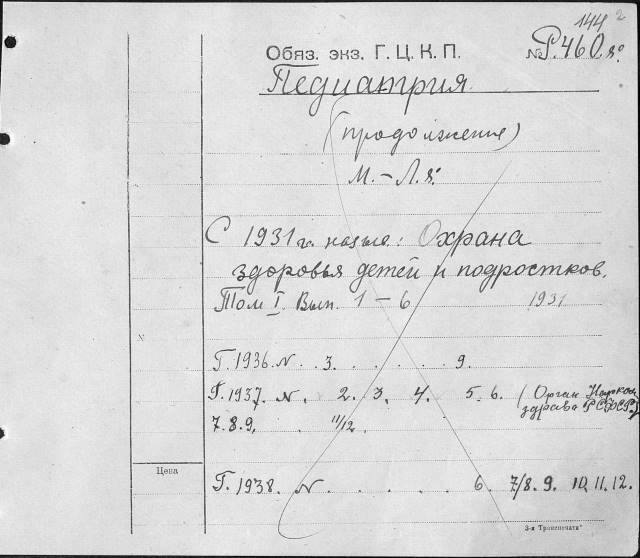 144 2
Обяз. экз. Г. Ц. К. П. № Р.460 8°
Педиатрия
(продолжение)
М.–Л. 8°
С 1931 г. назыв.: Охрана
здоровья детей и подростков.
Том I. Вып. 1 – 6 1931
Г. 1936. N . 3. . . . . . 9.
Г. 1937. N. . 2. 3. 4. 5. 6. (Орган Нарком.
здрава РСФСР.)
7. 8. 9. . . 11/12.
Цена
Г. 1938. N . . . . . 6. 7/8. 9. 10. 11. 12.
3-я Транспечати"